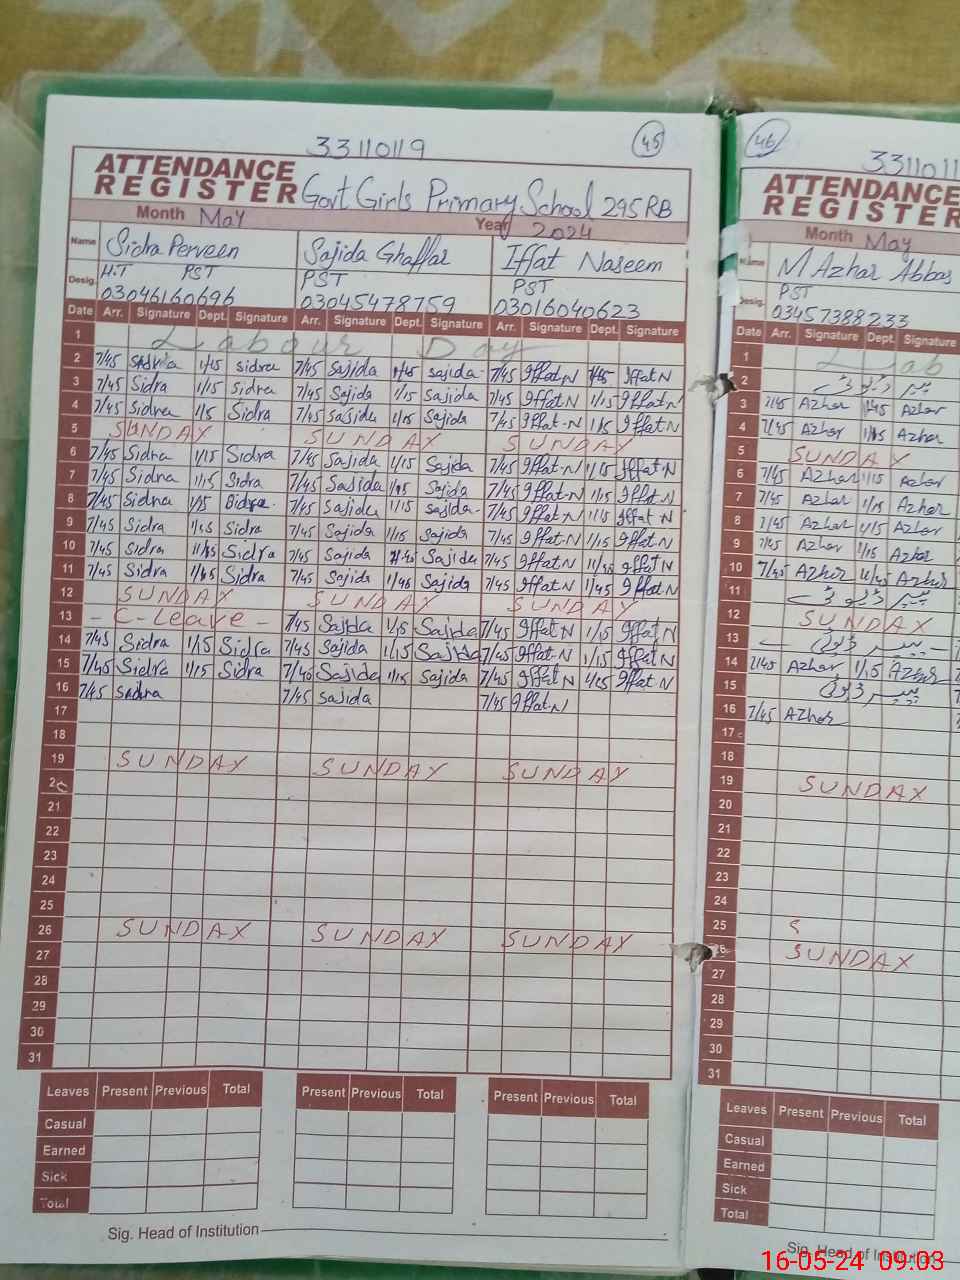 33110119
45
ATTENDANCE
REGISTER Govt Girls Primary School 295 RB
Month May Year 2024
Name Sidra Perveen Sajida Ghaffar Iffat Naseem
Desig. H.T PST PST PST
03046160696 03045478759 03016040623
Date Arr. Signature Dept. Signature Arr. Signature Dept. Signature Arr. Signature Dept. Signature
1 Labour Day
2 7/45 Sidra 1/15 Sidra 7/45 Sajida Sajida 7/45 Iffat N Iffat N
3 7/45 Sidra 1/15 Sidra 7/45 Sajida 1/15 Sajida 7/45 Iffat N 1/15 Iffat N
4 7/45 Sidra 1/15 Sidra 7/45 Sajida 1/15 Sajida 7/45 Iffat-N 1/15 Iffat N
5 SUNDAY SUNDAY SUNDAY
6 7/45 Sidra 1/15 Sidra 7/45 Sajida 1/15 Sajida 7/45 Iffat-N 1/15 Iffat N
7 7/45 Sidra 1/15 Sidra 7/45 Sajida 1/15 Sajida 7/45 Iffat-N 1/15 Iffat N
8 7/45 Sidra 1/15 Sidra 7/45 Sajida 1/15 Sajida 7/45 Iffat-N 1/15 Iffat N
9 7/45 Sidra 1/15 Sidra 7/45 Sajida 1/15 Sajida 7/45 Iffat N 1/15 Iffat N
10 7/45 Sidra Sidra 7/45 Sajida Sajida 7/45 Iffat N 11/45 Iffat N
11 7/45 Sidra Sidra 7/45 Sajida Sajida 7/45 Iffat N 11/45 Iffat N
12 SUNDAY SUNDAY SUNDAY
13 - C-Leave - 7/45 Sajida 1/15 Sajida 7/45 Iffat N 1/15 Iffat N
14 7/45 Sidra 1/15 Sidra 7/45 Sajida 1/15 Sajida 7/45 Iffat N 1/15 Iffat N
15 7/45 Sidra 1/15 Sidra 7/45 Sajida 1/15 Sajida 7/45 Iffat N 1/15 Iffat N
16 7/45 Sidra 7/45 Sajida 7/45 Iffat-N
17
18
19 SUNDAY SUNDAY SUNDAY
20
21
22
23
24
25
26 SUNDAY SUNDAY SUNDAY
27
28
29
30
31
Leaves Present Previous Total Present Previous Total Present Previous Total
Casual
Earned
Sick
Total
Sig. Head of Institution
46
3311011
ATTENDANCE
REGISTER
Month May
Name M Azhar Abbas
Desig. PST
03457388233
Date Arr. Signature Dept. Signature
1 Lab
2 پیپر ڈیوٹی
3 7/45 Azhar Azhar
4 7/45 Azhar 1/15 Azhar
5 SUNDAY
6 7/45 Azhar 1/15 Azhar
7 7/45 Azhar 1/15 Azhar
8 7/45 Azhar 1/15 Azhar
9 7/45 Azhar 1/15 Azhar
10 7/45 Azhar 11/45 Azhar
11 پیپر ڈیوٹی
12 SUNDAY
13 پیپر ڈیوٹی
14 7/45 Azhar 1/15 Azhar
15 پیپر ڈیوٹی
16 7/45 Azhar
17
18
19 SUNDAY
20
21
22
23
24
25 S
26 SUNDAY
27
28
29
30
31
Leaves Present Previous Total
Casual
Earned
Sick
Total
Sig. Head of Institution
16-05-24 09:03